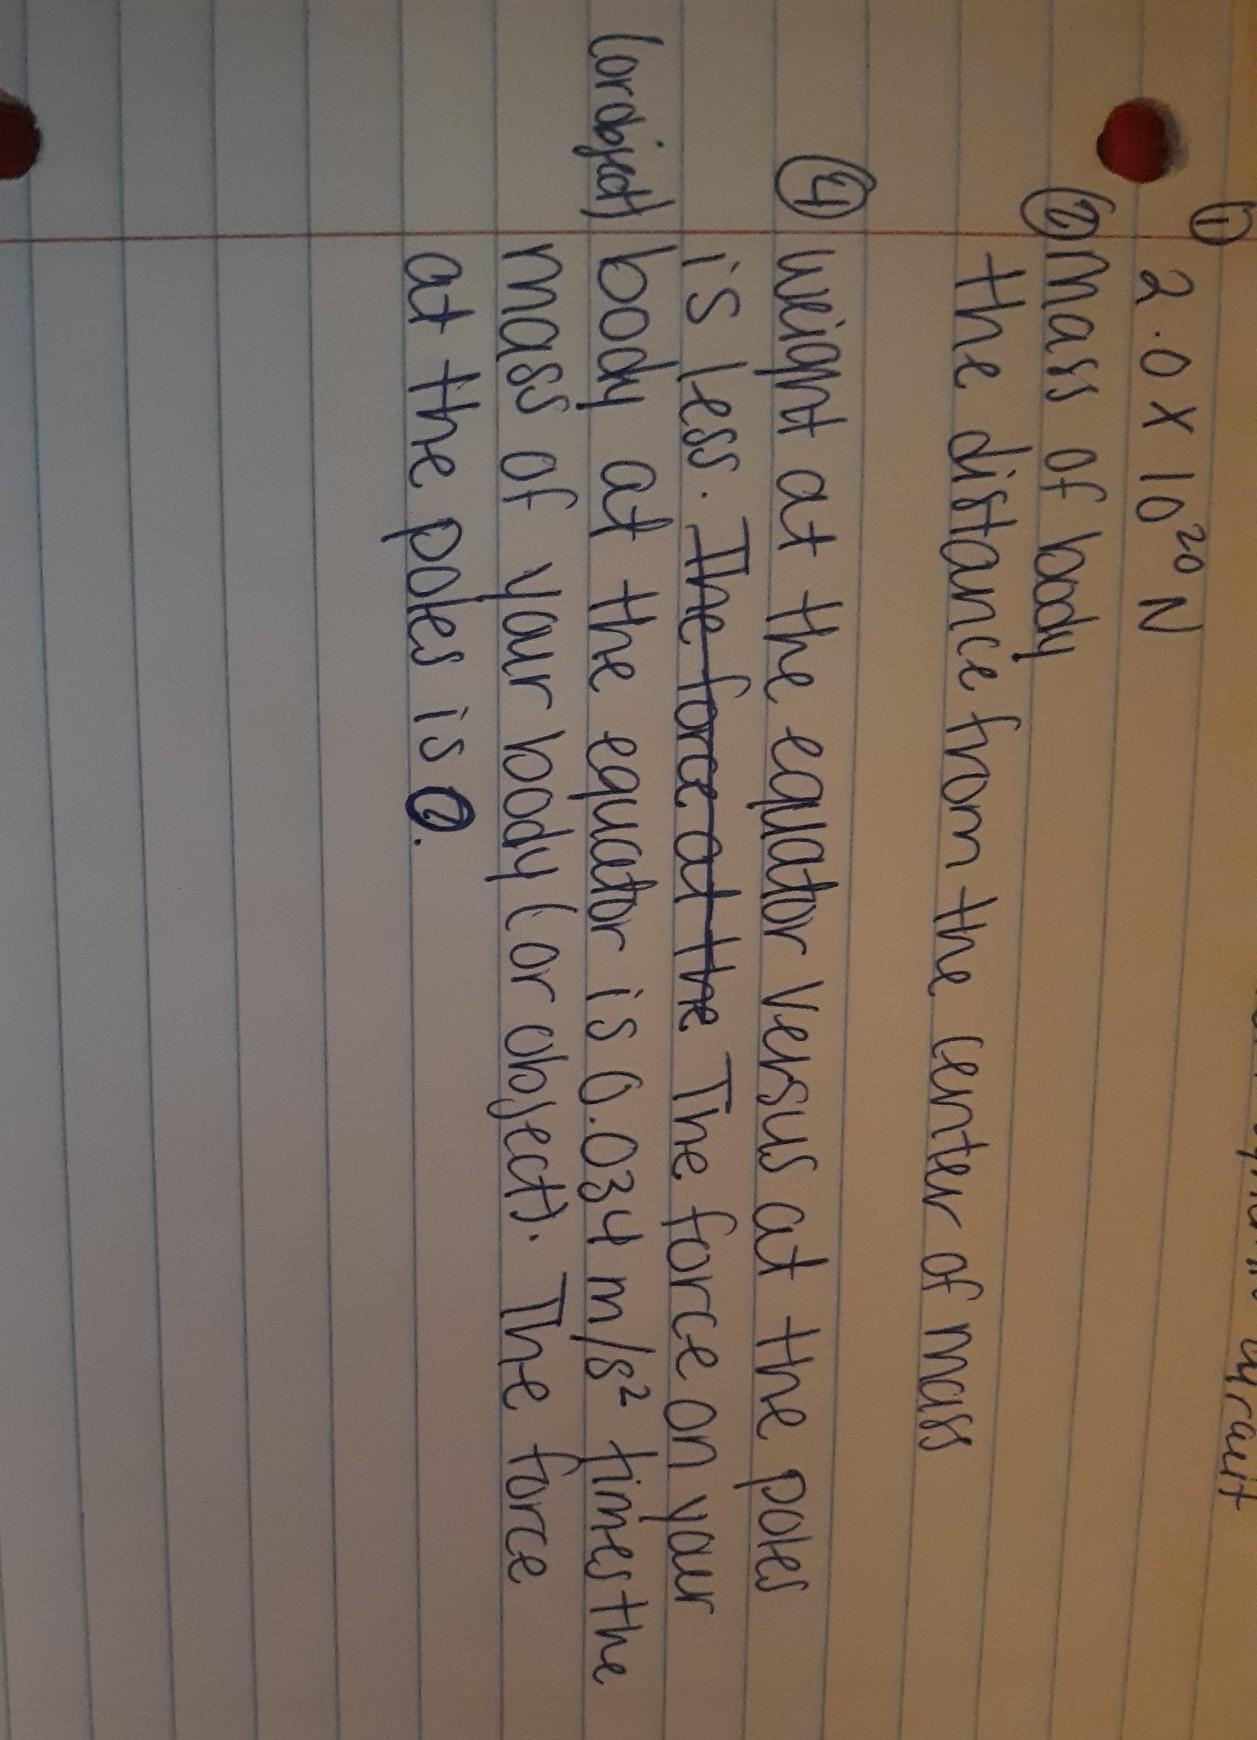 ①
2.0 x 10²⁰ N
② mass of body
the distance from the center of mass
④ weight at the equator versus at the poles
is less. The force at the The force on your
(or object) body at the equator is 0.034 m/s² times the
mass of your body (or object). The force
at the poles is 0.